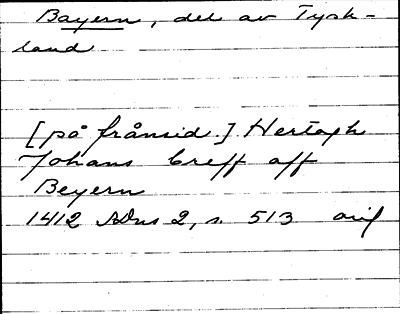 Bayern, del av Tysk-
land
[på frånsid.] Hertogh
Johans breff aff
Beyern
1412 SDns 2, s. 513 orig